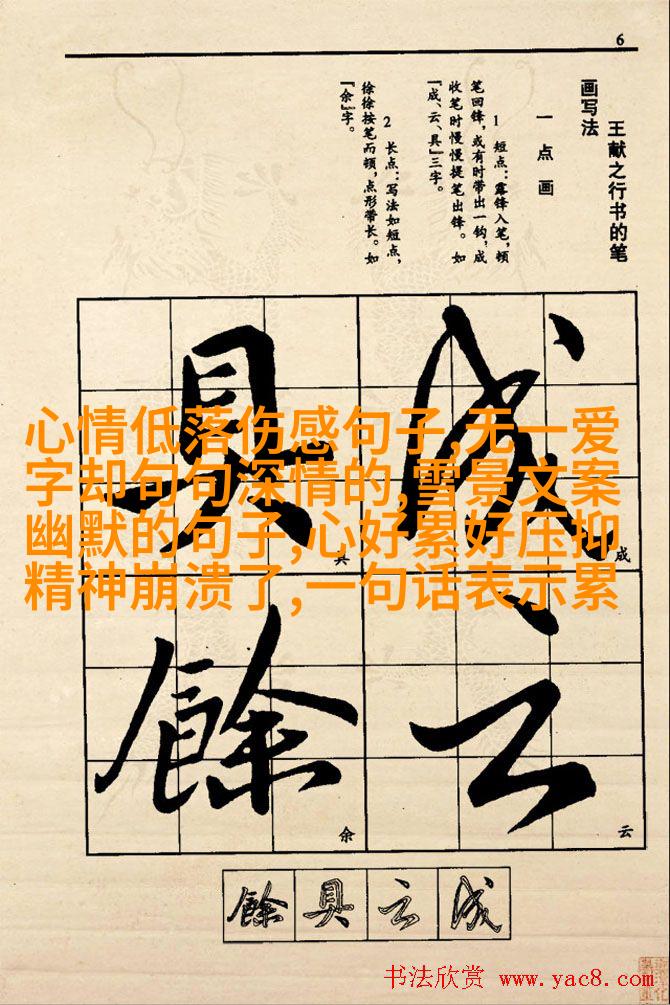 6
王献之行书的笔
画写法
一 点 画
1 短点：露锋入笔，顿
笔回锋，或有时带出一钩，成
收笔时慢慢提笔出锋。如
「成、云、具」三字。
2 长点：写法如短点，
徐徐按笔而顿，点形带长。如
「余」字。
成
具
心情低落伤感句子,无一爱
字却句句深情的,雪景文案
幽默的句子,心好累好压抑
精神崩溃了,一句话表示累
成
具
云
餘
云
余
餘 具 云 成
书法欣赏 www.yac8.com